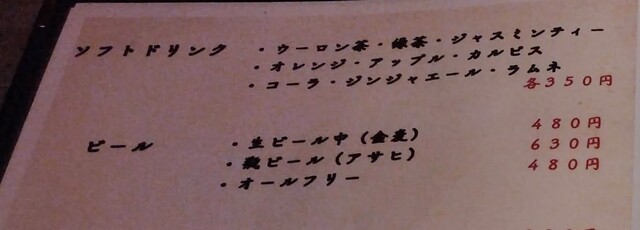 ソフトドリンク ・ウーロン茶・緑茶・ジャスミンティー
・オレンジ・アップル・カルピス
・コーラ・ジンジャエール・ラムネ 各350円
ビール ・生ビール中(金麦) 480円
・瓶ビール(アサヒ) 630円
・オールフリー 480円